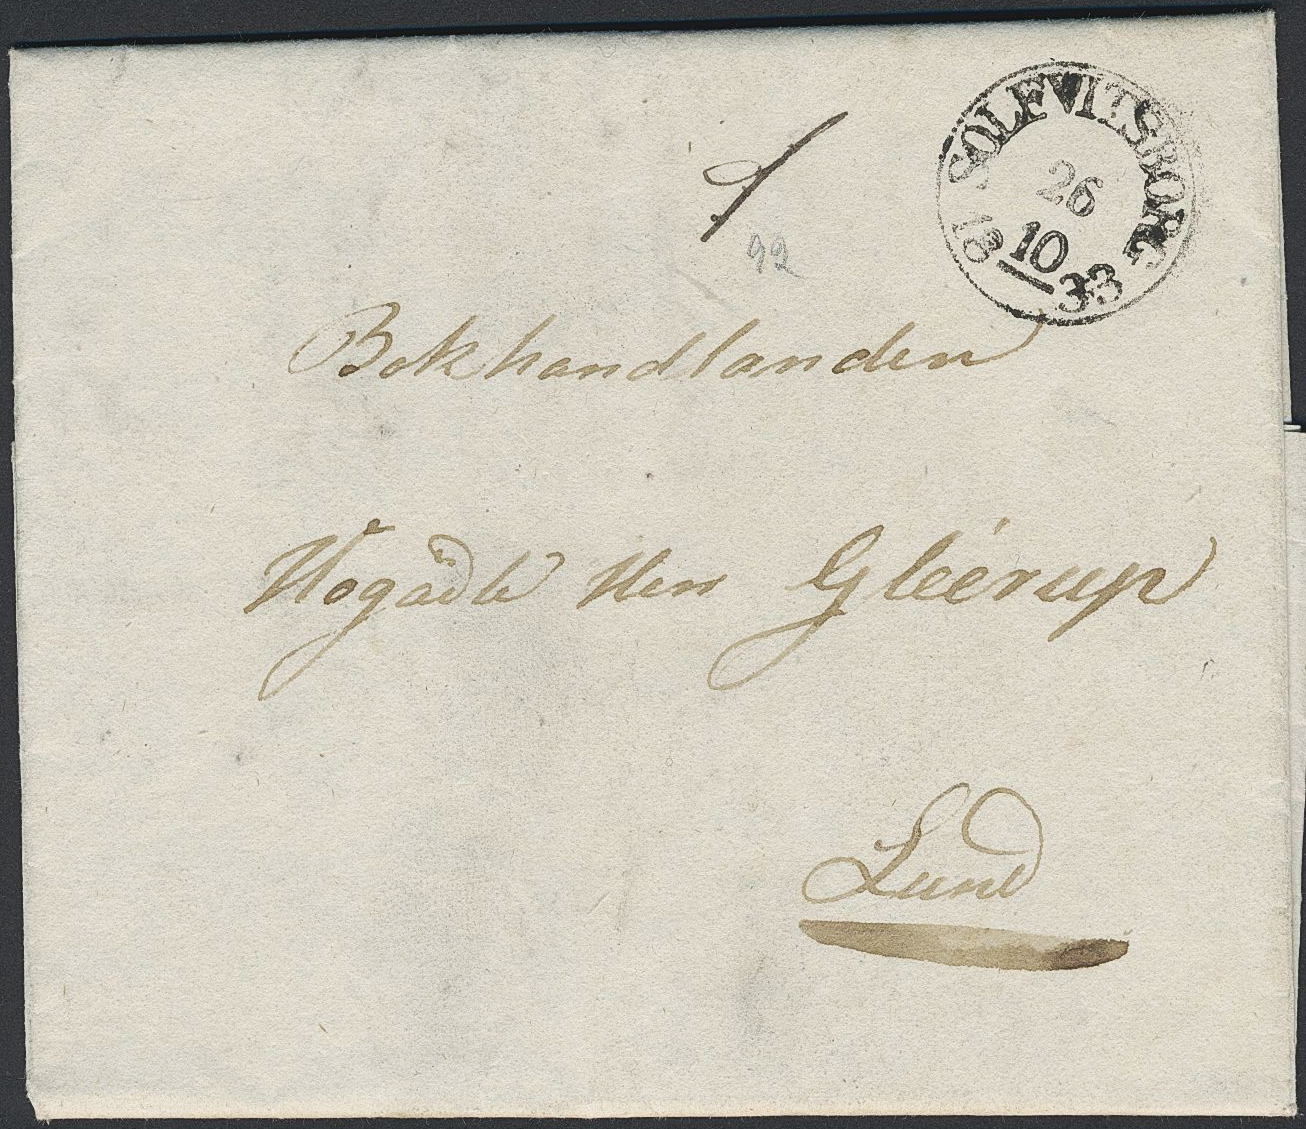 SOLFVITSBORG
26
10
18 33
92
Bokhandlanden
Högädle Herr Gleerup
Lund